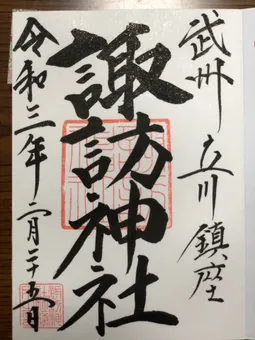 武州 立川 鎮座
諏訪神社
令和三年二月二十五日